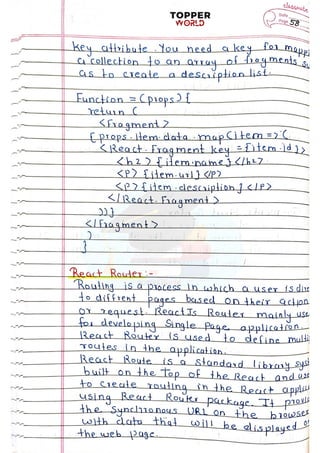 classmate
TOPPER
WORLD
Date
Page 58
key attribute. You need a key for mapp
a collection to an array of fragments su
as to create a description list.
Function = (props) {
return (
<fragment>
{props.item.data.map(item => (
<React.Fragment key = {item.id}>
<h2> {item.name} </h2>
<P> {item.url} </P>
<P> {item.description} </P>
</React.Fragment>
))}
</fragment>
)
}
React Router :-
Routing is a process in which a user is dire
to diffrent pages based on their action
or request. ReactJs Router mainly use
for developing Single Page application.
React Router is used to define multi
routes in the application.
React Route is a standard library syst
built on the top of the React and use
to create routing in the React applic
using React Router package. It provid
the synchronous URL on the browser
with data that will be displayed o
the web page.